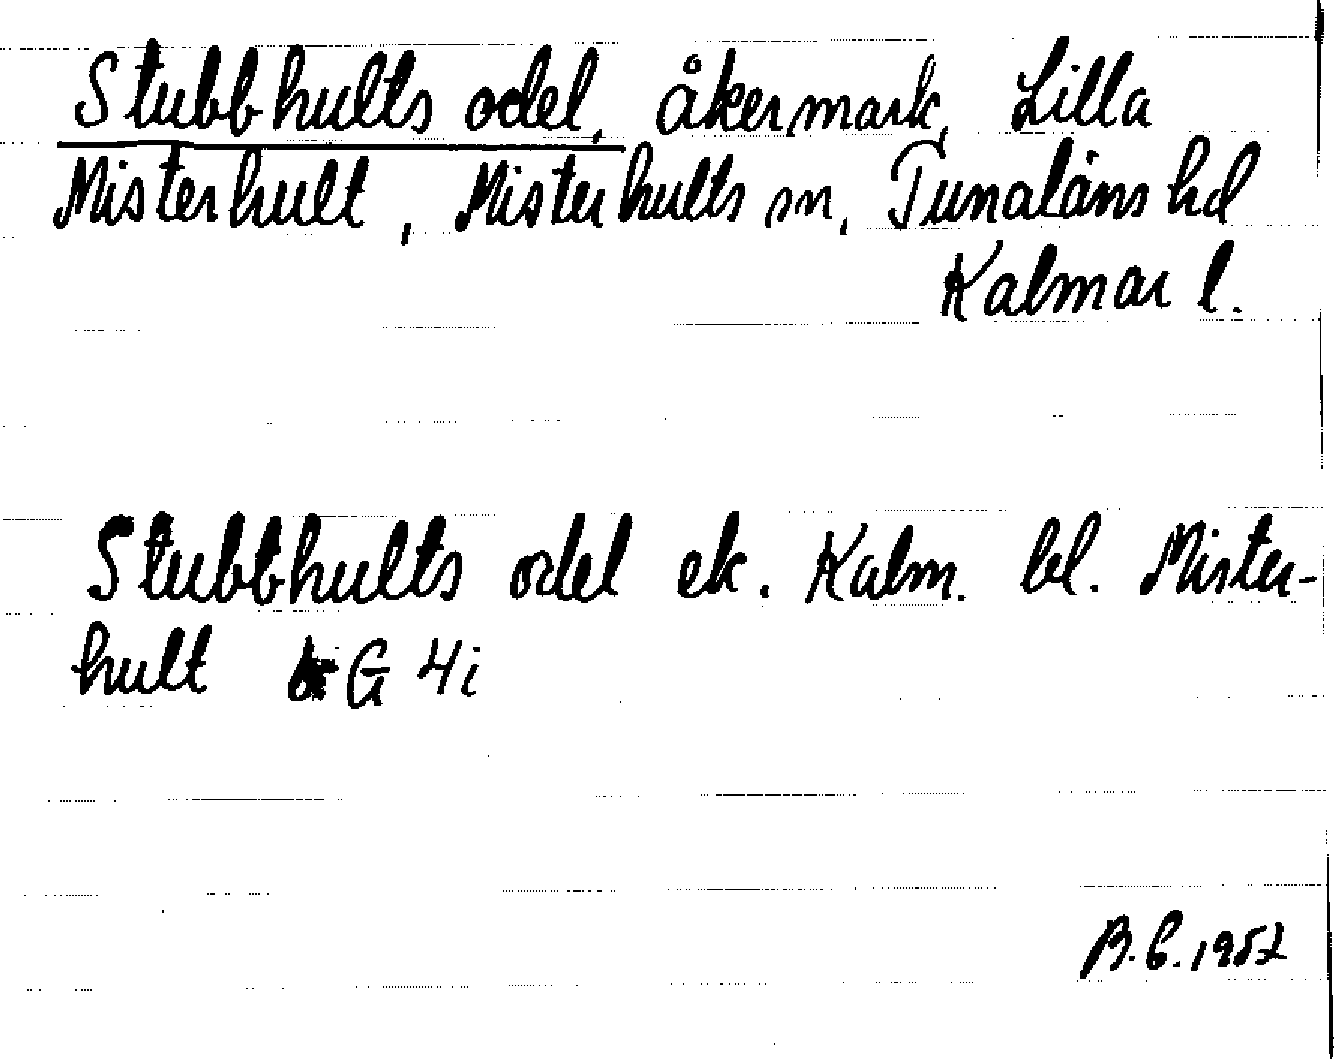 Stubbhults odel, åkermark, Lilla
Misterhult, Misterhults sn, Tunaläns hd
Kalmar l.
Stubbhults odel ek. Kalm. bl. Mister-
hult G 4i
B.G. 1952